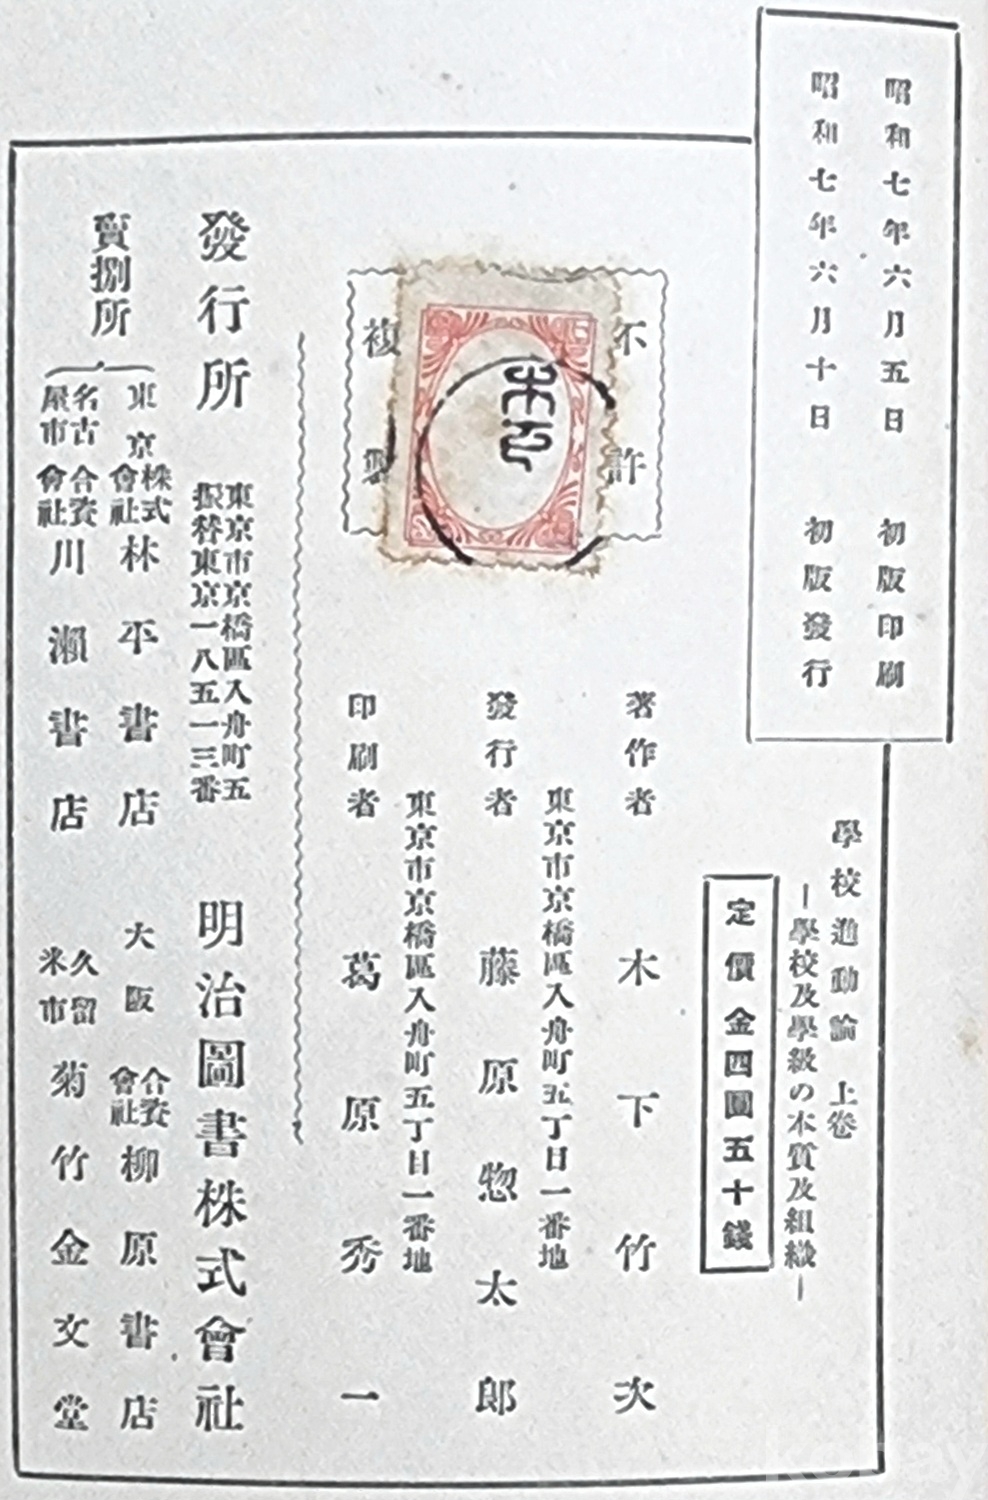 昭和七年六月五日 初版印刷
昭和七年六月十日 初版發行
學校進動論 上卷
―學校及學級の本質及組織―
定價金四圓五十錢
不許
複製
著作者 木下竹次
東京市京橋區入舟町五丁目一番地
發行者 藤原惣太郎
東京市京橋區入舟町五丁目一番地
印刷者 葛原秀一
發行所
東京市京橋區入舟町五
振替東京一八五一三番
明治圖書株式會社
賣捌所
東京 株式會社 林平書店
大阪 合資會社 柳原書店
名古屋市 合資會社 川瀨書店
久留米市 菊竹金文堂